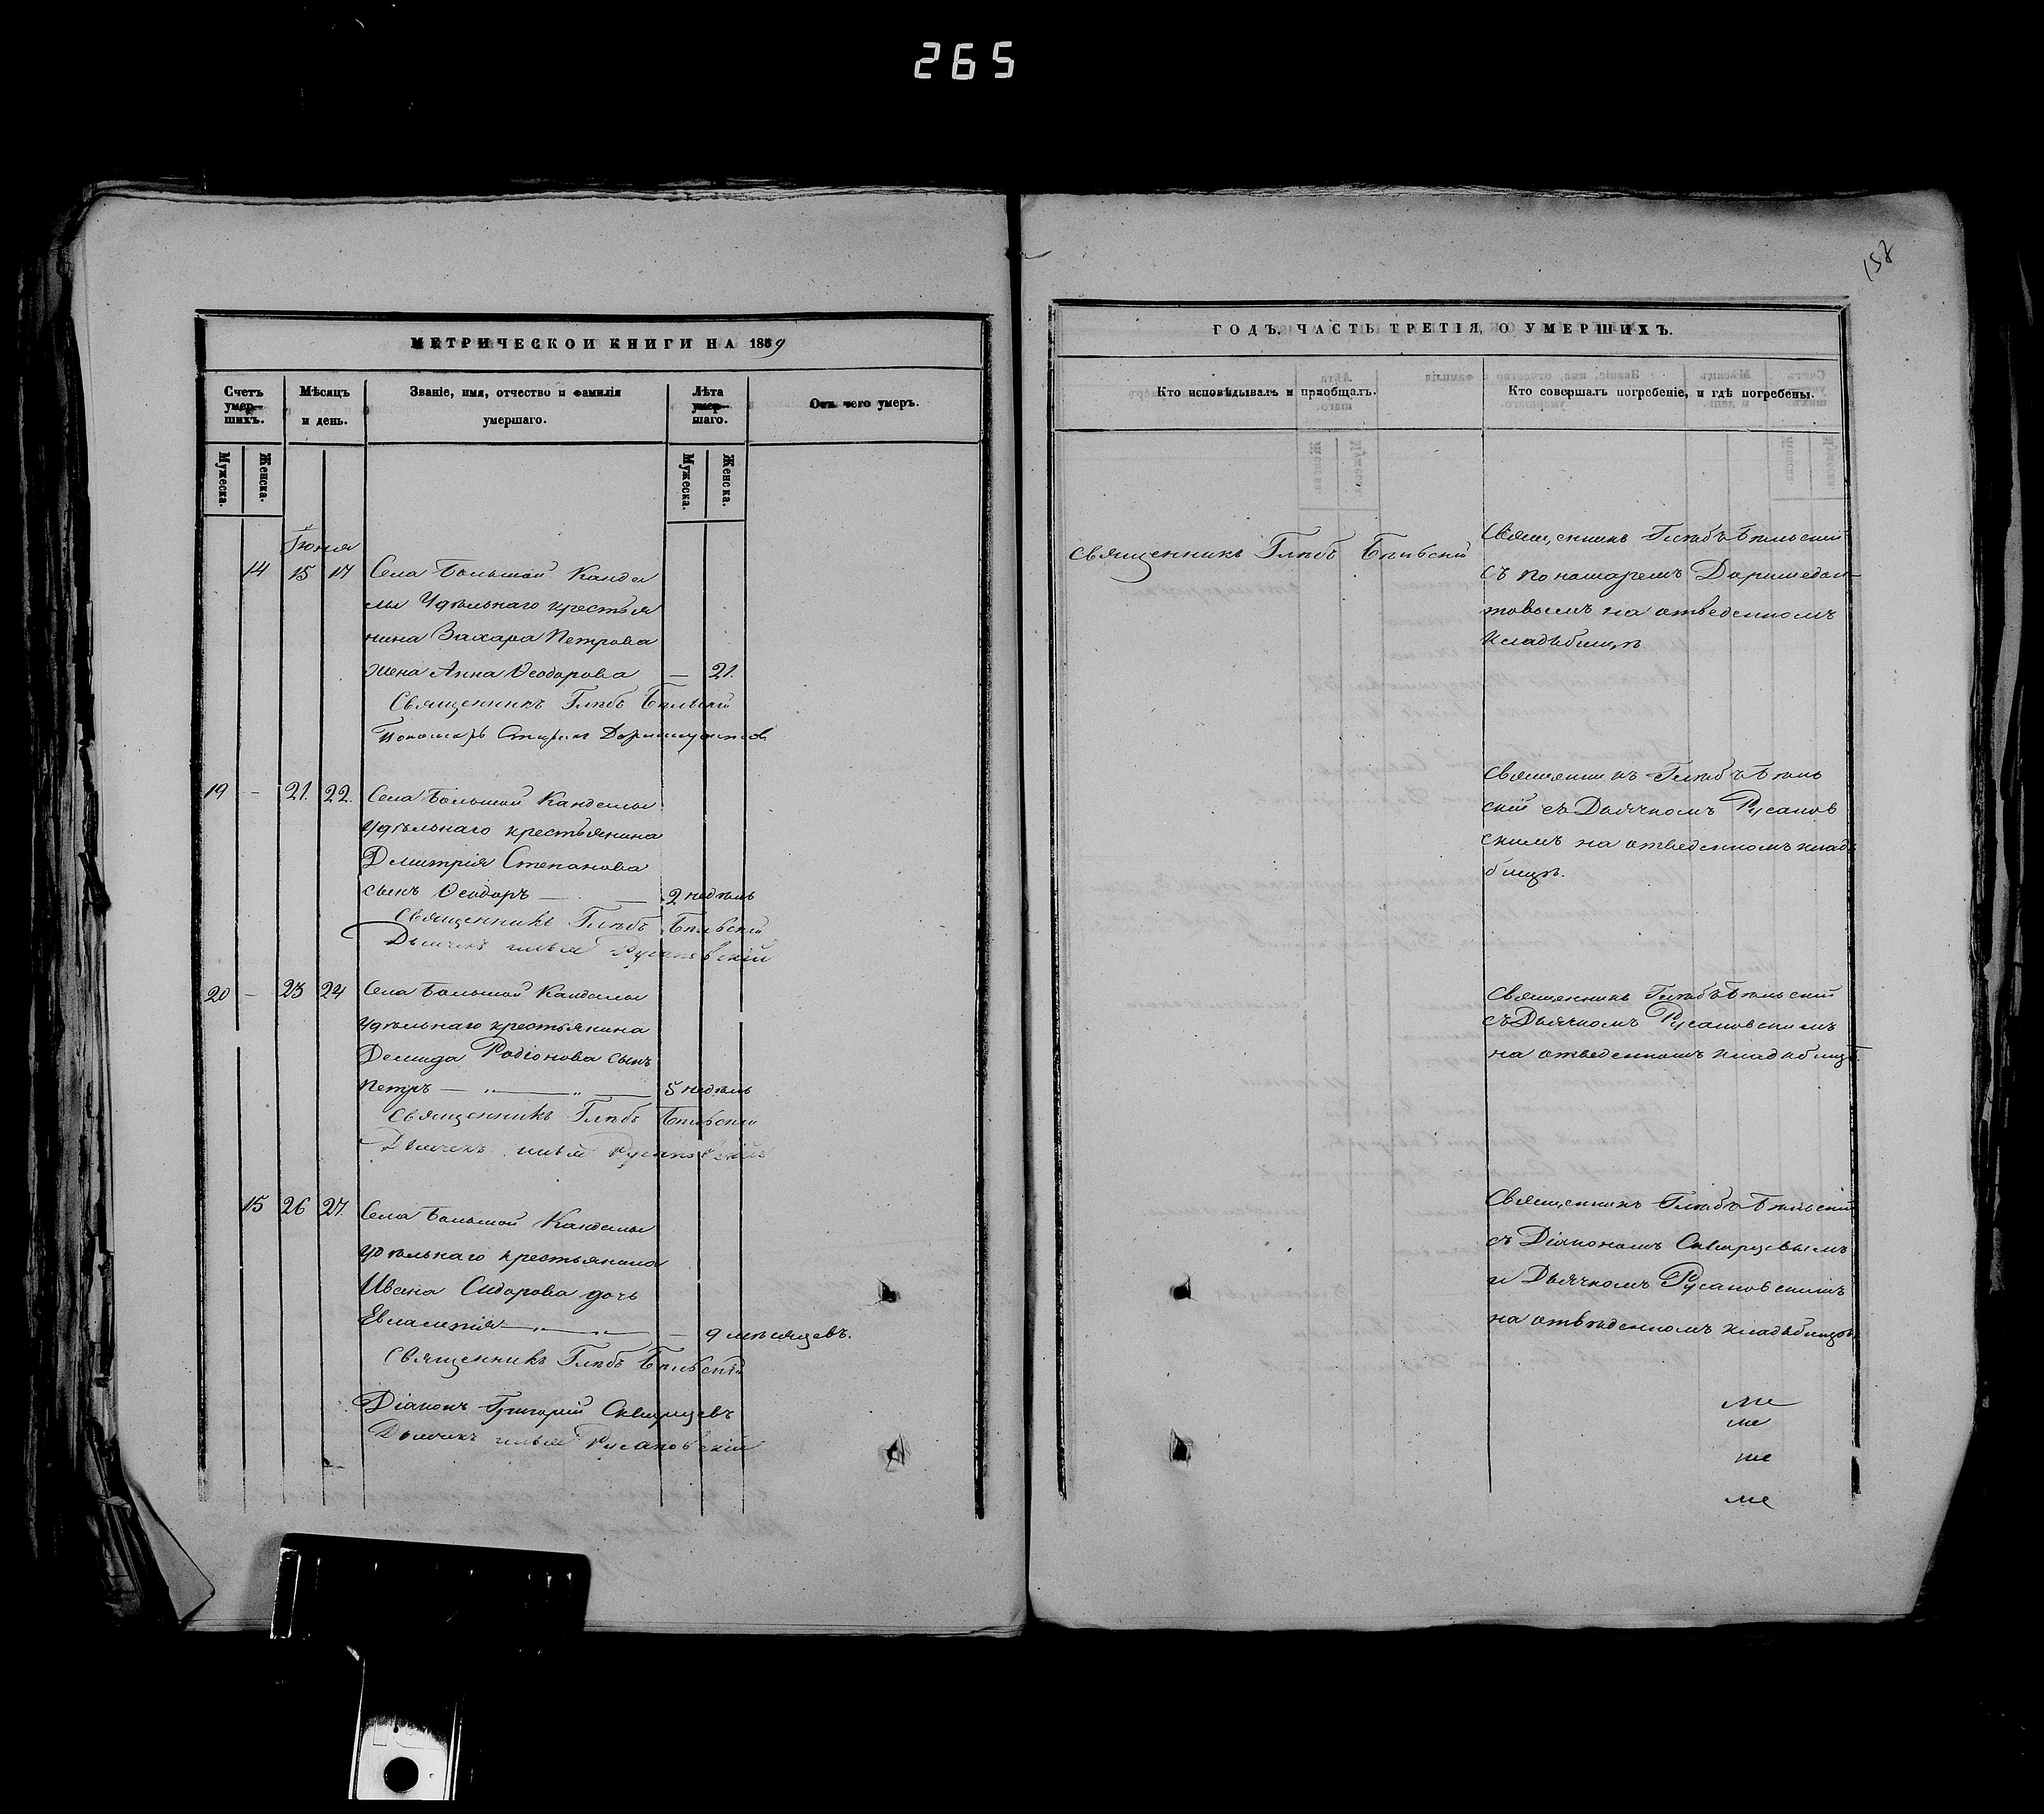 265
158
МЕТРИЧЕСКОЙ КНИГИ НА 1859
Счетъ умер-шихъ.
Мужеска.
Женска.
Мѣсяцъ и день.
Званіе, имя, отчество и фамилія умершаго.
Лѣта умер-шаго.
Мужеска.
Женска.
Отъ чего умеръ.
Іюня
14 15 17 Села БольшойКанда
лы Удѣльнаго крестья
нина Захара Петрова
жена Анна Ѳеодорова — 21.
Священникъ Глѣбъ Бѣльскій
Пономарь
19 — 21. 22. Села Большой Кандалы
Удѣльнаго крестьянина
Дмитрія Степанова
сынъ Ѳеодоръ — 2 недѣль
Священникъ Глѣбъ Бѣльскій
Дьячекъ Илья Русановскій
20 — 23 24 Села Большой Кандалы
Удѣльнаго крестьянина
Демида Родіонова сынъ
Петръ — „ — „ — 5 недѣль
Священникъ Глѣбъ Бѣльскій
Дьячекъ Илья Русановскій
15 26 27. Села Большой Кандалы
Удѣльнаго крестьянина
Ивана Сидорова дочь
Евлампія — „ — „ — — 9 мѣсяцевъ.
Священникъ Глѣбъ Бѣльскій
Діаконъ Григорій Скварцевъ
Дьячекъ Илья Русановскій
ГОДЪ, ЧАСТЬ ТРЕТІЯ, О УМЕРШИХЪ.
Кто исповѣдывалъ и пріобщалъ.
Кто совершалъ погребеніе, и гдѣ погребены.
Священникъ Глѣбъ Бѣльскій
Священникъ Глѣбъ Бѣльскій
съ пономаремъ Доримедон-
товымъ на отведенномъ
кладбищѣ
Священникъ Глѣбъ Бѣль
скій съ Дьячкомъ Русанов
скимъ на отведенномъ клад
бищѣ.
Священникъ Глѣбъ Бѣльскій
съ Дьячкомъ Русановскимъ
на отведенномъ кладбищѣ.
Священникъ Глѣбъ Бѣльскій
съ Діакономъ Скварцевымъ
и Дьячкомъ Русановскимъ
на отведенномъ кладбищѣ.